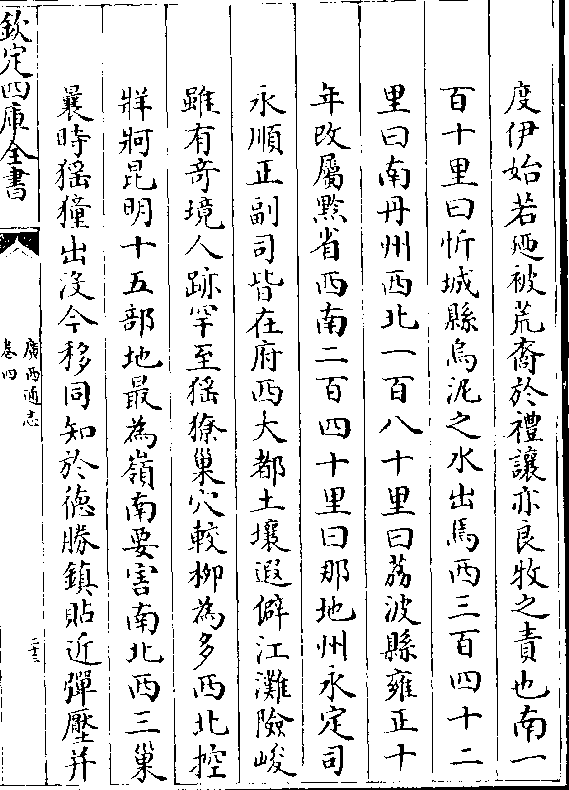 度伊始若廼被荒裔於禮讓亦良牧之責也南一
百十里曰忻城縣烏泥之水出焉西三百四十二
里曰南丹州西北一百八十里曰荔波縣雍正十
年改屬黔省西南二百四十里曰那地州永定司
永順正副司皆在府西大都土壤遐僻江灘險峻
雖有奇境人跡罕至猺獠巢穴較柳為多西北控
牂牁昆明十五部地最為嶺南要害南北西三巢
曩時猺獞出沒今移同知於德勝鎮貼近彈壓并
欽定四庫全書
廣西通志
卷四
二十三